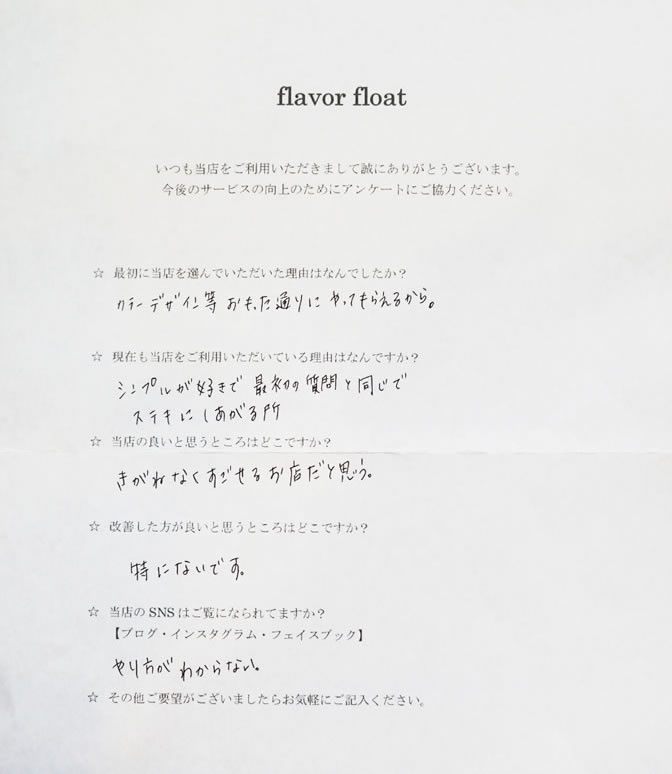 flavor float
いつも当店をご利用いただきまして誠にありがとうございます。
今後のサービスの向上のためにアンケートにご協力ください。
☆ 最初に当店を選んでいただいた理由はなんでしたか？
カラーデザイン等 おもった通りに やってもらえるから。
☆ 現在も当店をご利用いただいている理由はなんですか？
シンプルが好きで 最初の質問と同じで
ステキにしあがる所
☆ 当店の良いと思うところはどこですか？
きがねなくすごせるお店だと思う。
☆ 改善した方が良いと思うところはどこですか？
特にないです。
☆ 当店の SNS はご覧になられてますか？
【ブログ・インスタグラム・フェイスブック】
やり方がわからない。
☆ その他ご要望がございましたらお気軽にご記入ください。